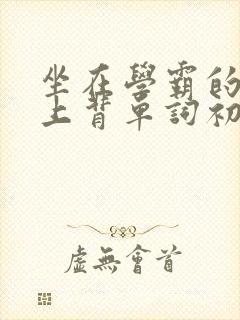 坐在學霸的
上背單詞初
虛無會首